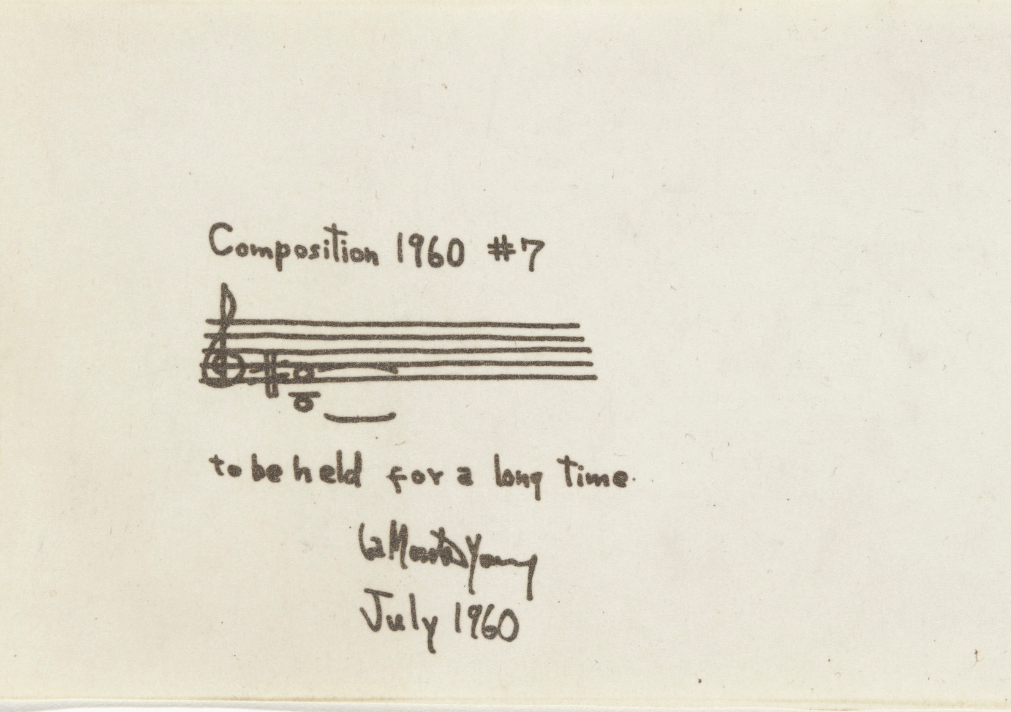 Composition 1960 #7
to be held for a long time.
La Monte Young
July 1960